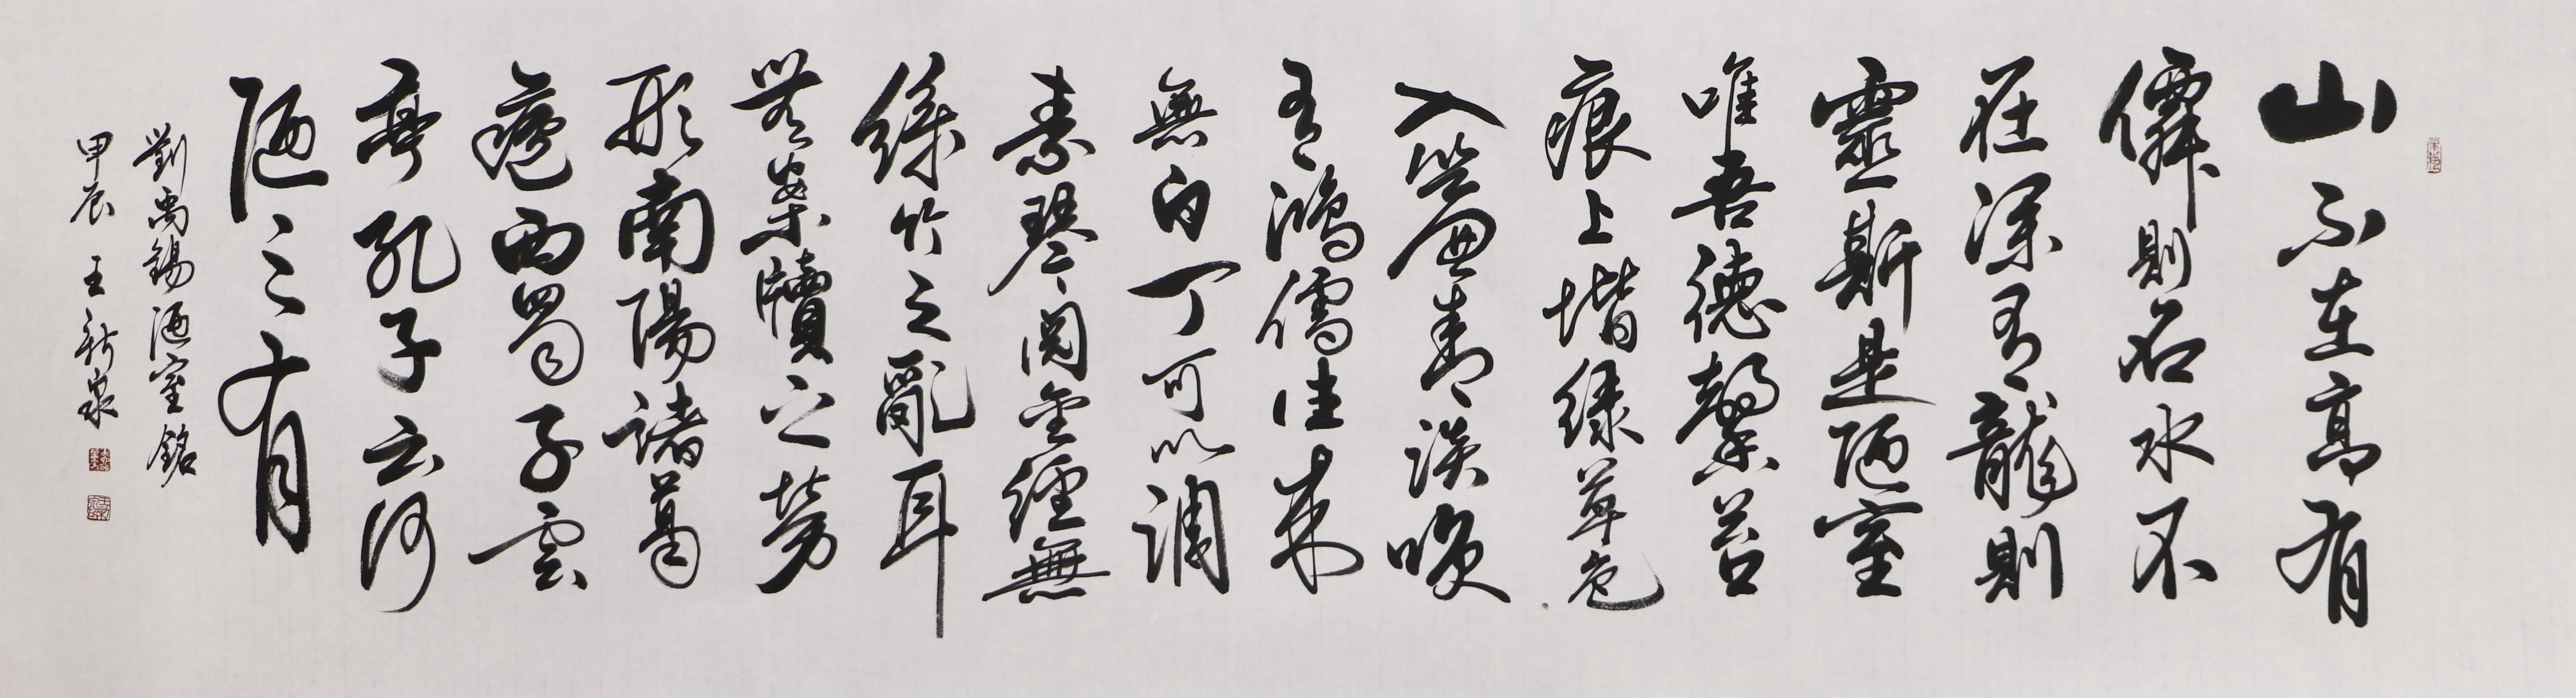 山不在高有
僊則名水不
在深有龍則
靈斯是陋室
唯吾德馨苔
痕上堦綠草色
入簾青談咲
有鴻儒往來
無白丁可以調
素琴閱金經無
絲竹之亂耳
無案牘之勞
形南陽諸葛
廬西蜀子雲
亭孔子云何
陋之有
劉禹錫陋室銘
甲辰 王新泉